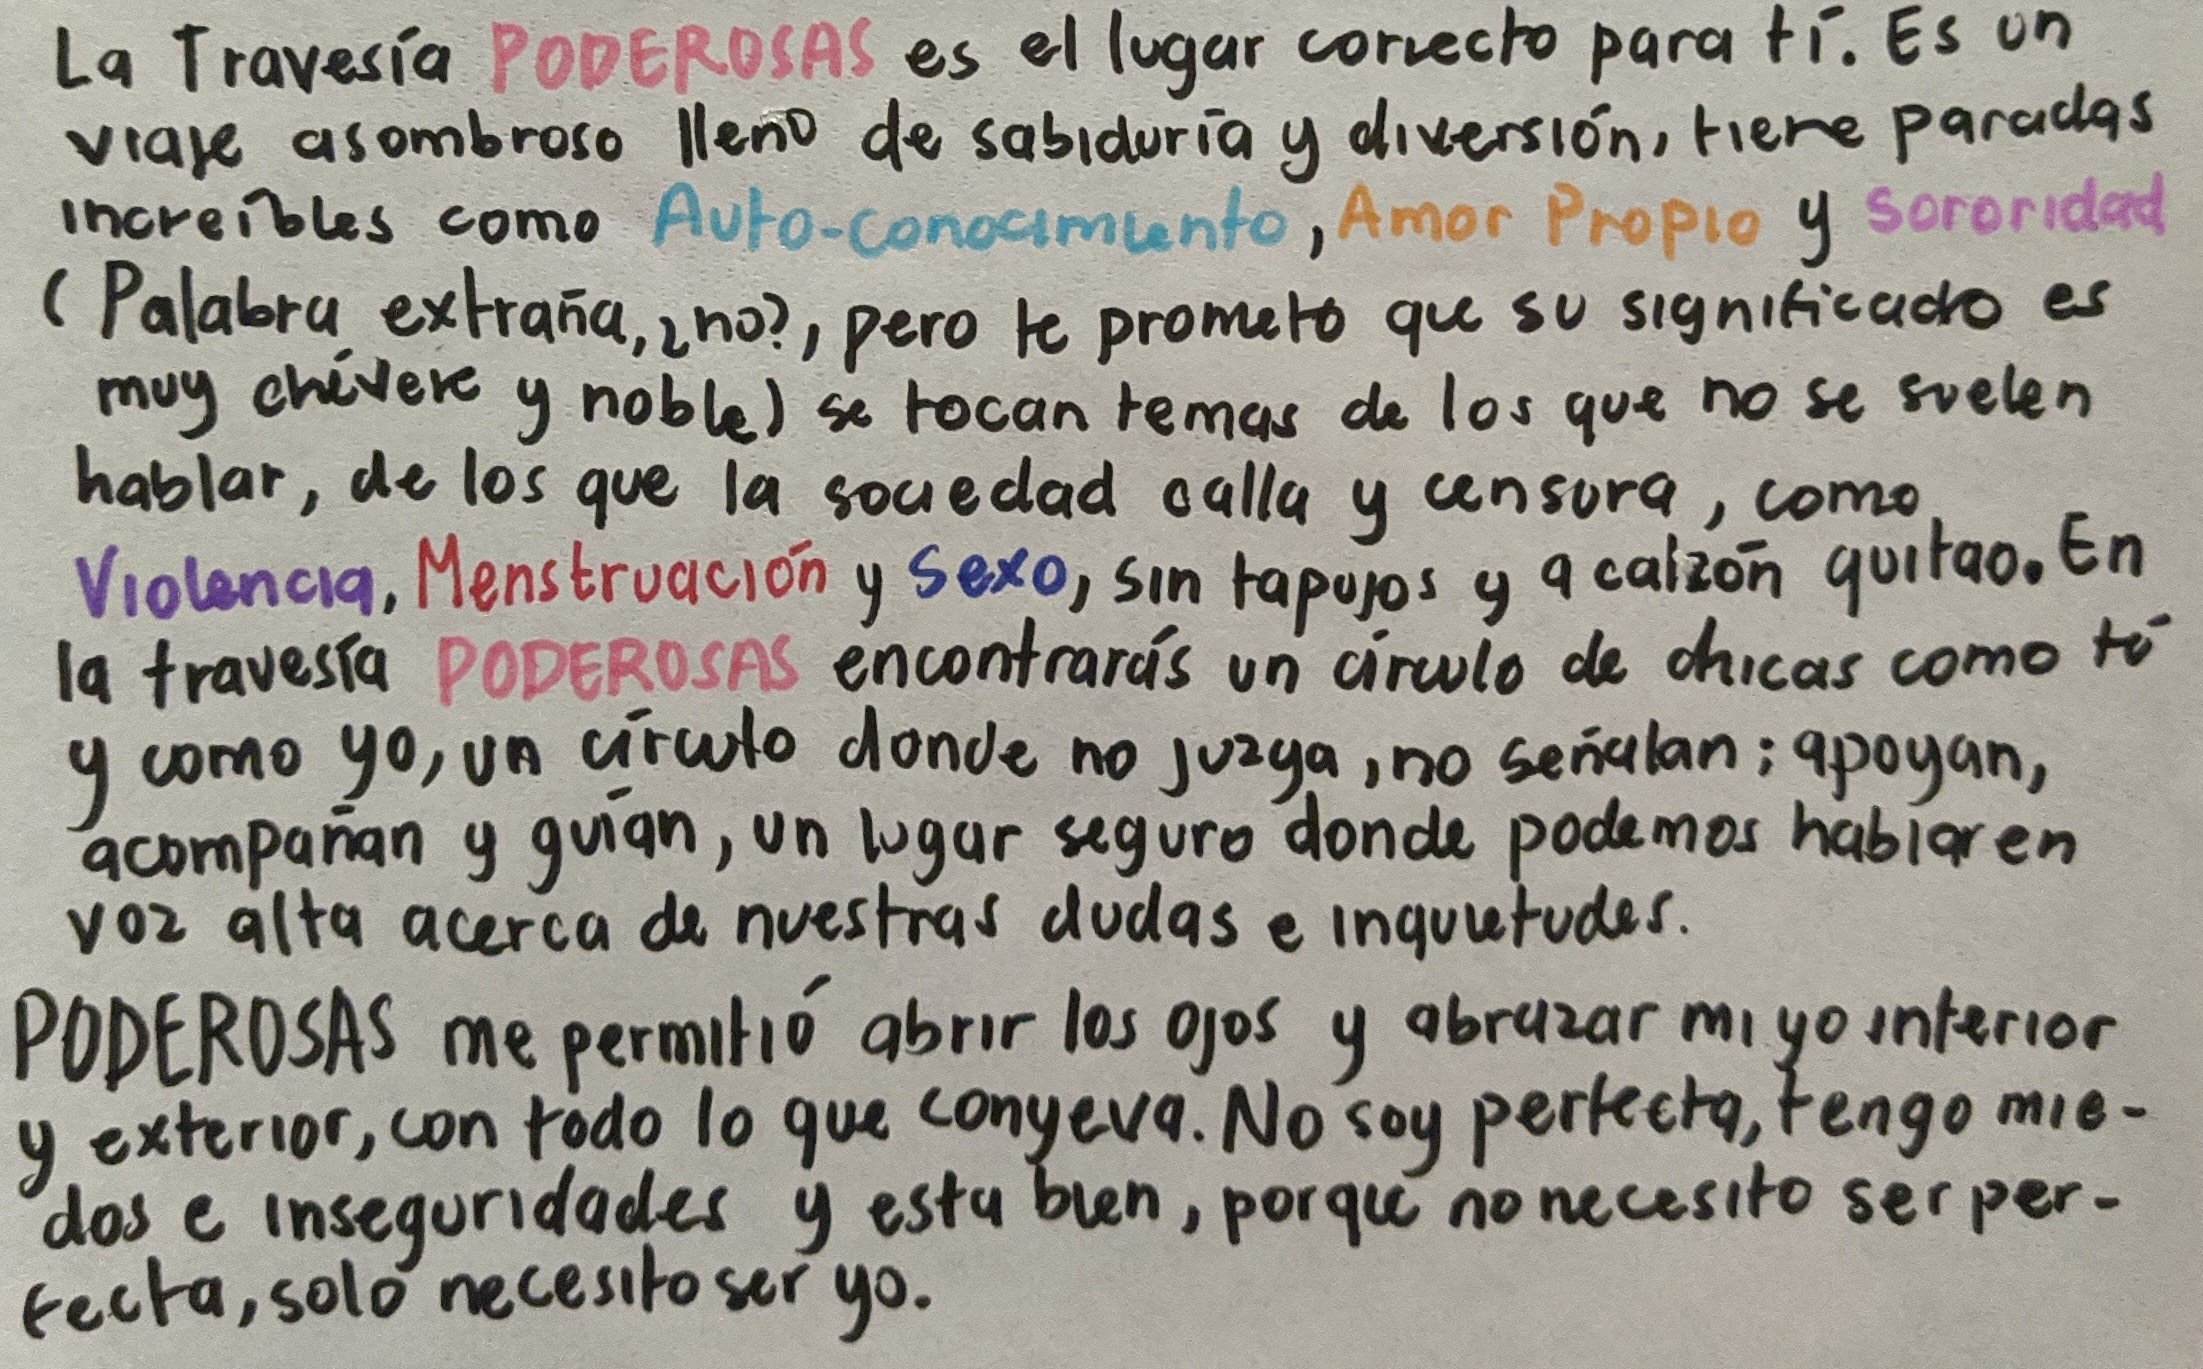 La Travesía PODEROSAS es el lugar correcto para tí. Es un
viaje asombroso lleno de sabiduría y diversión, tiene paradas
increíbles como Auto-conocimiento, Amor Propio y Sororidad
(Palabra extraña, ¿no?, pero te prometo que su significado es
muy chévere y noble) se tocan temas de los que no se suelen
hablar, de los que la sociedad calla y censura, como
Violencia, Menstruación y Sexo, sin tapujos y a calzón quitao. En
la travesía PODEROSAS encontrarás un círculo de chicas como tú
y como yo, un círculo donde no juzga, no señalan; apoyan,
acompañan y guían, un lugar seguro donde podemos hablar en
voz alta acerca de nuestras dudas e inquietudes.
PODEROSAS me permitió abrir los ojos y abrazar mi yo interior
y exterior, con todo lo que conyeva. No soy perfecta, tengo mie-
dos e inseguridades y esta bien, porque no necesito ser per-
fecta, solo necesito ser yo.